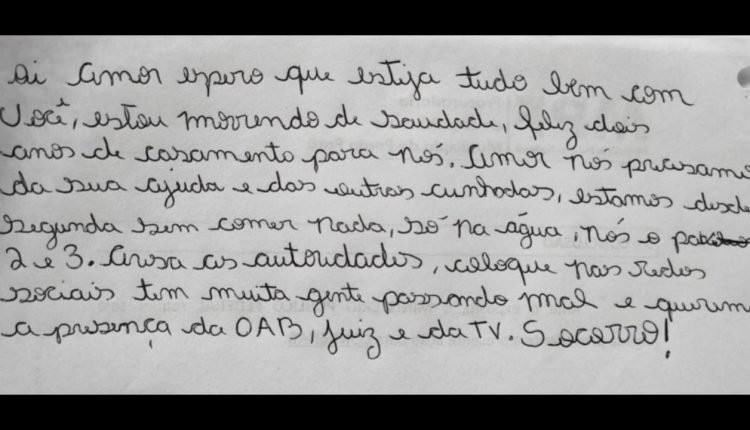 oi Amor espero que estija tudo bem com
você, estou morrendo de saudade, feliz dois
anos de casamento para nós. Amor nós precisamo
da sua ajuda e das outras cunhadas, estamos desde
segunda sem comer nada, só na água, nós o
2 e 3. Avisa as autoridades, coloque nas redes
sociais tem muita gente passando mal e querem
a presença da OAB, juiz e da TV. Socorro!